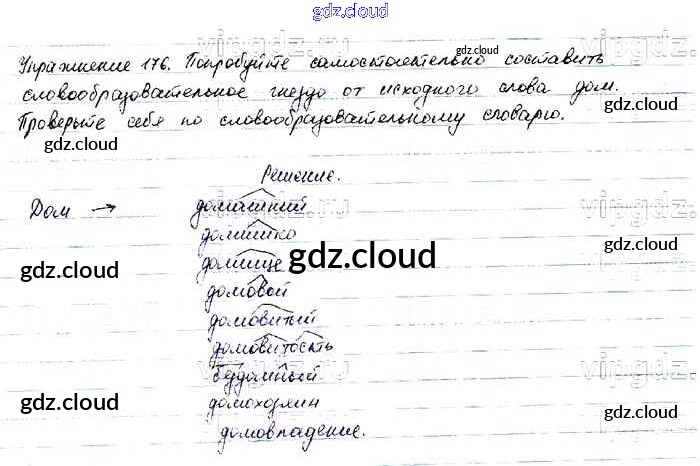 gdz.cloud
Упражнение 176. Попробуйте самостоятельно составить
gdz.cloud
словообразовательное гнездо от исходного слова дом.
gdz.cloud
Проверьте себя по словообразовательному словарю.
gdz.cloud
Решение.
vipgdz.ru
vipgdz.
Дом → домашний
домишко
gdz.cloud
домище gdz.cloud
gdz.cloud
домовой
домовитый
домовитость
vipgdz.ru
бездомный
gdz.cloud
домохозяин
gdz.cloud
gdz.cloud
домовладение.